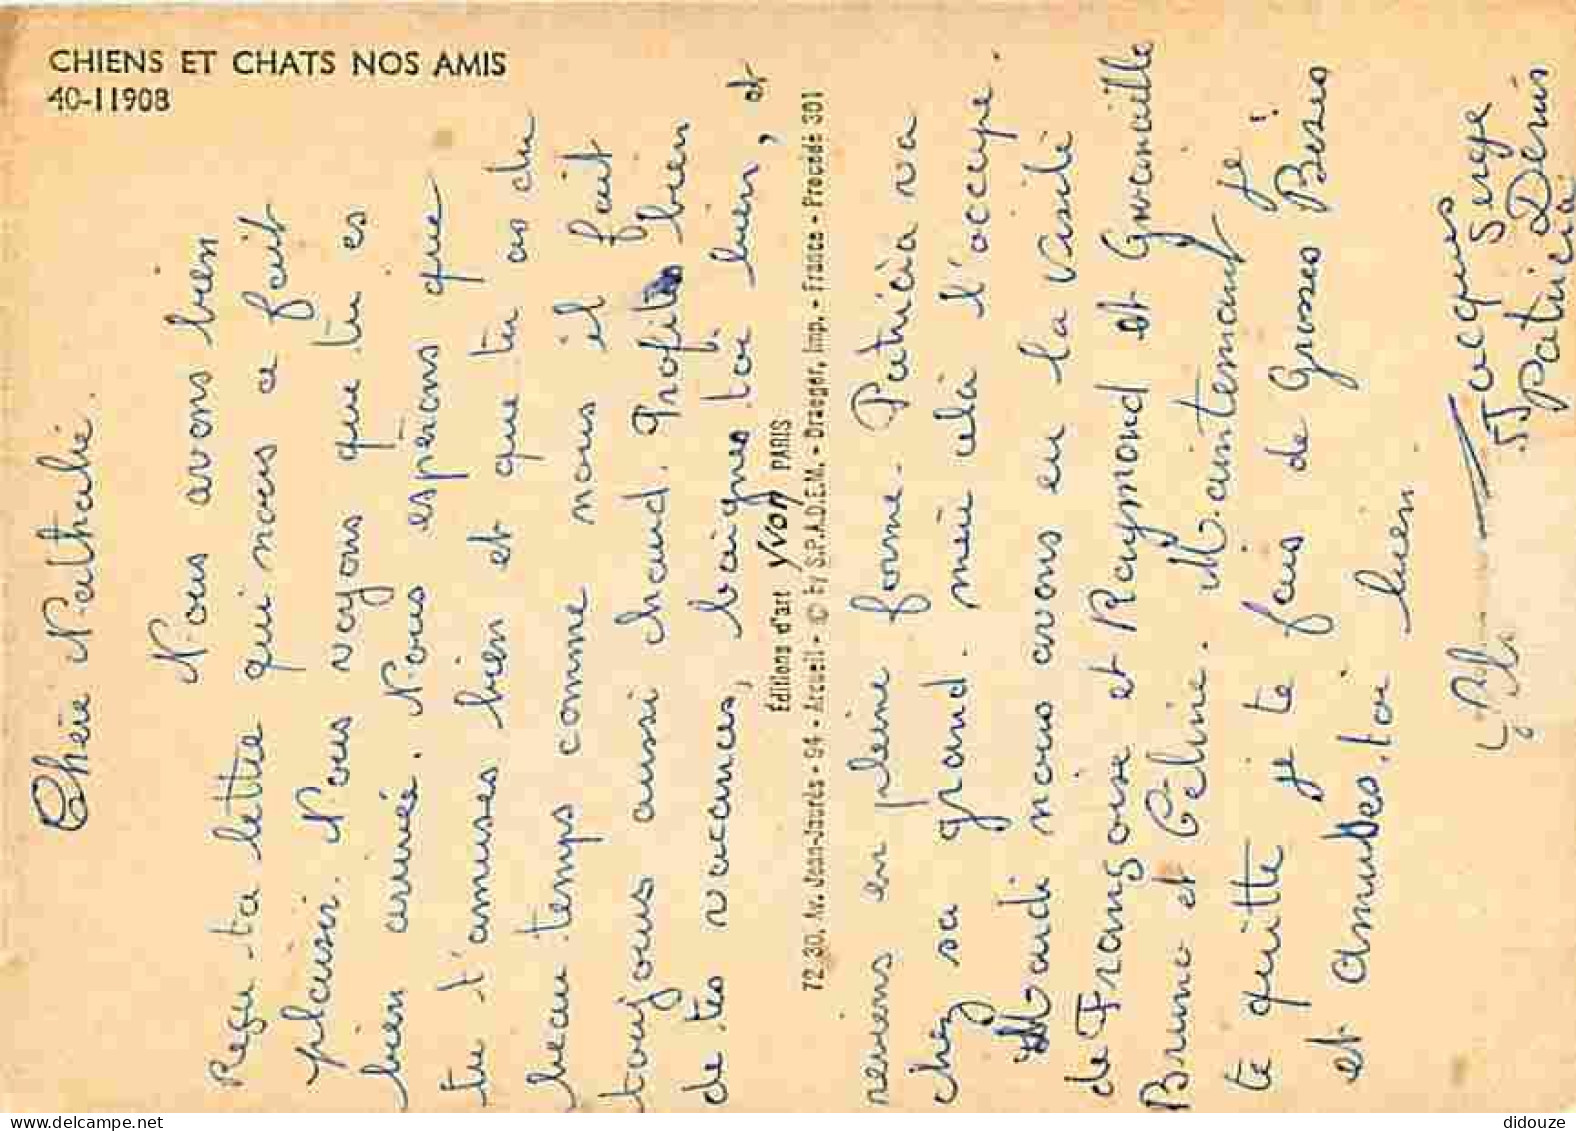 CHIENS ET CHATS NOS AMIS
40-11908
Chère Nathalie.
Nous avons bien
Reçu ta lettre qui nous a fait
plaisir. Nous voyons que tu es
bien arrivée. Nous espérons que
tu t'amuses bien et que tu as du
beau temps comme nous il fait
toujours aussi chaud. Profites bien
de tes vacances, baignes toi bien, et
Éditions d'art Yvon PARIS
72-30, Av. Jean-Jaurès - 94 - Arcueil - © by S.P.A.D.E.M. - Draeger, Imp. - France - Procédé 301
reviens en pleine forme. Patricia va
chez sa grand. mère cela l'occupe.
Mardi nous avons eu la visite
de Françoise et Raymond et
Bruno et Céline. Maintenant je
te quitte je te fais de Grosses Bises !
et amuses.toi bien
Jacques
Serge
Patricia
Denis
didouze